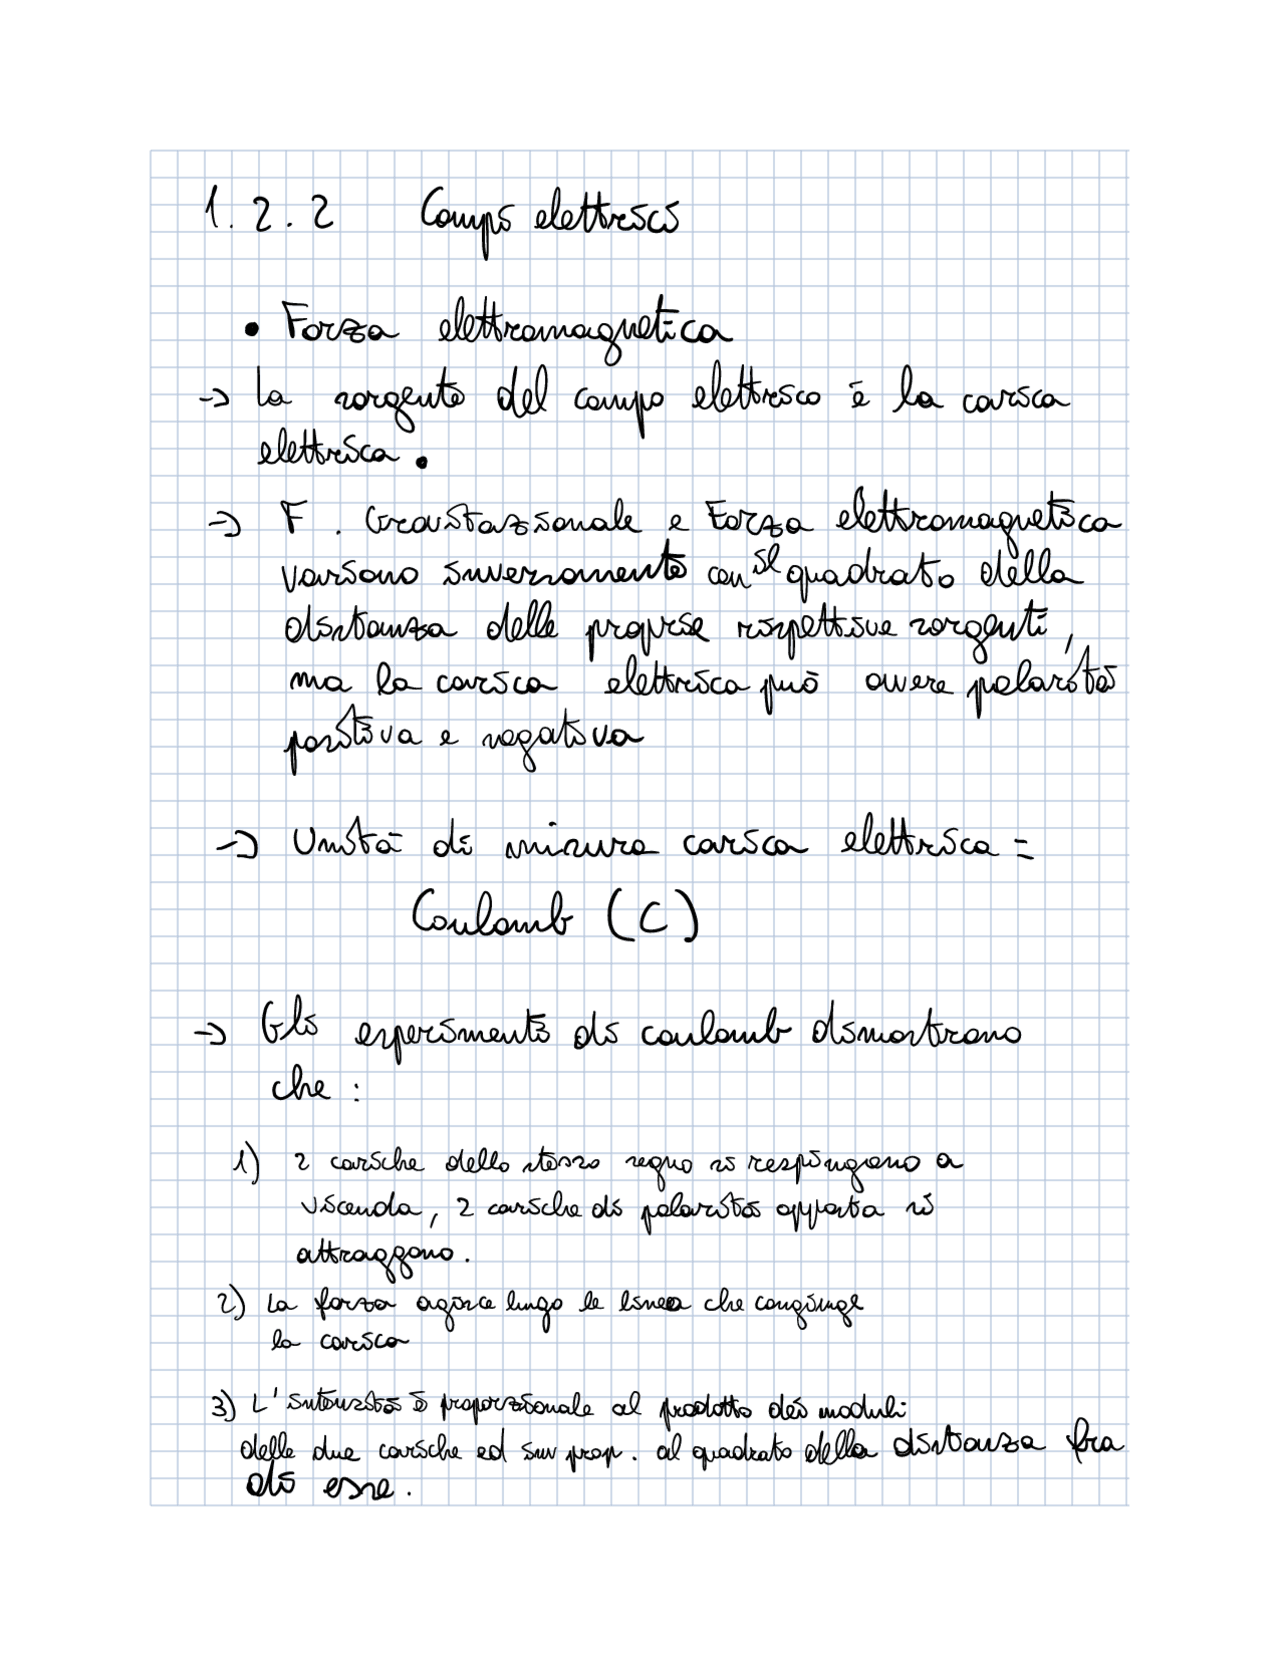 1.2.2 Campo elettrico
• Forza elettromagnetica
-> La sorgente del campo elettrico è la carica
elettrica.
-> F. Gravitazionale e Forza elettromagnetica
variano inversamente con il quadrato della
distanza delle proprie rispettive sorgenti,
ma la carica elettrica può avere polarità
positiva e negativa
-> Unità di misura carica elettrica =
Coulomb (C)
-> Gli esperimenti di coulomb dimostrano
che :
1) 2 cariche dello stesso segno si respingono a
vicenda, 2 cariche di polarità opposta si
attraggono.
2) La forza agisce lungo le linea che congiunge
la carica
3) L'intensità è proporzionale al prodotto dei moduli
delle due cariche ed inv prop. al quadrato della distanza fra
di esse.